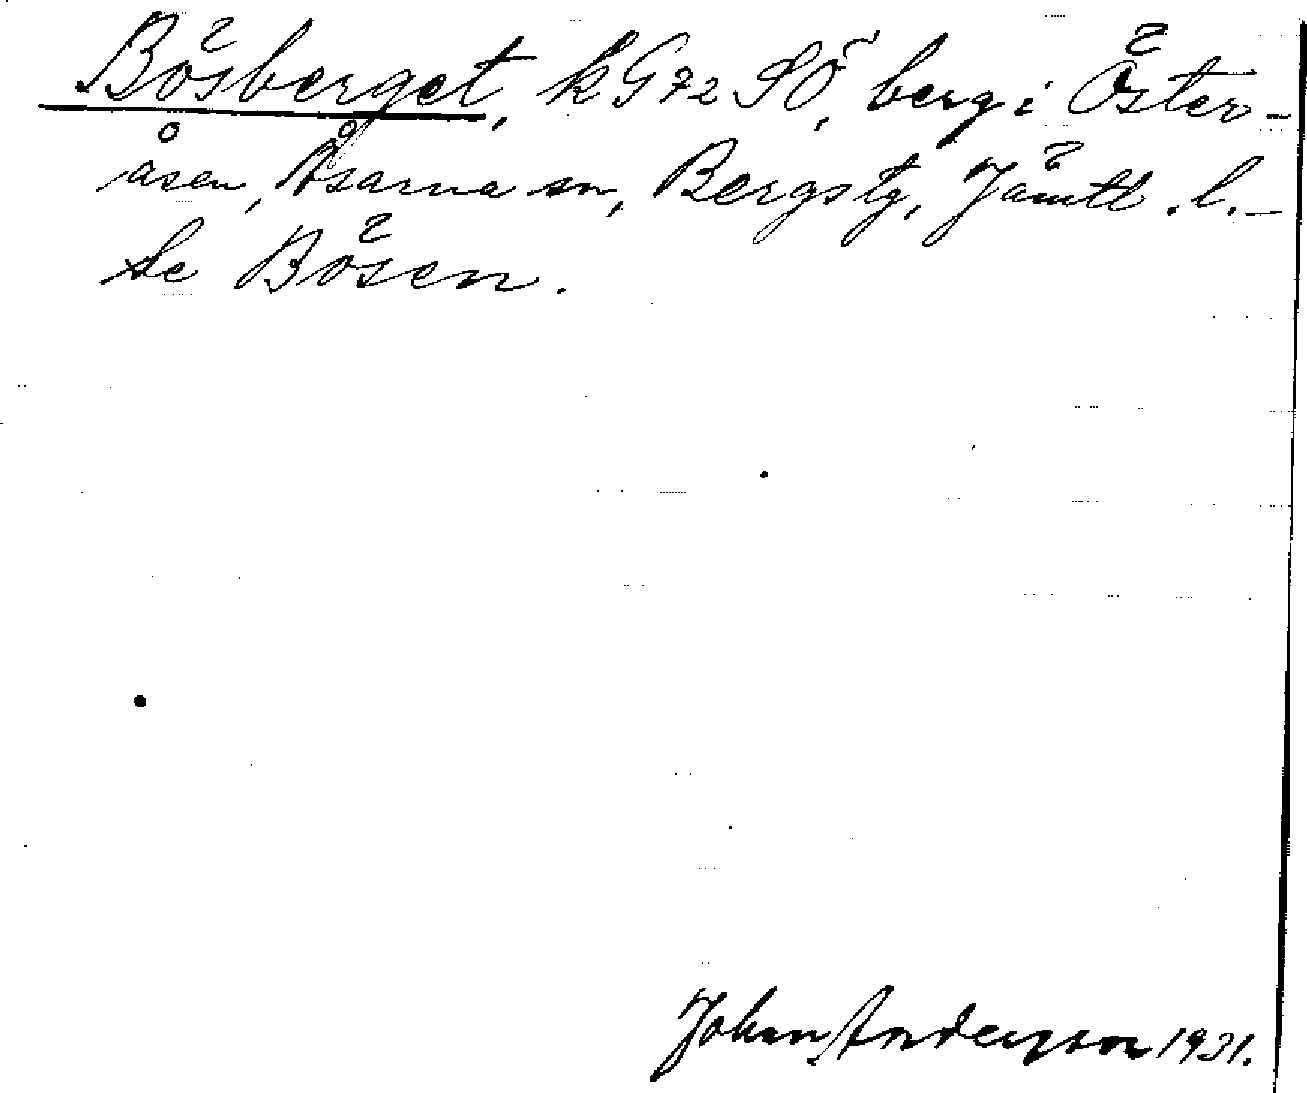 Bösberget, kG72SÖ, berg i Öster-
åsen, Åsarna sn, Bergs tg, Jämtl. l. -
Se Bösen.
Johan Anderson 1931.